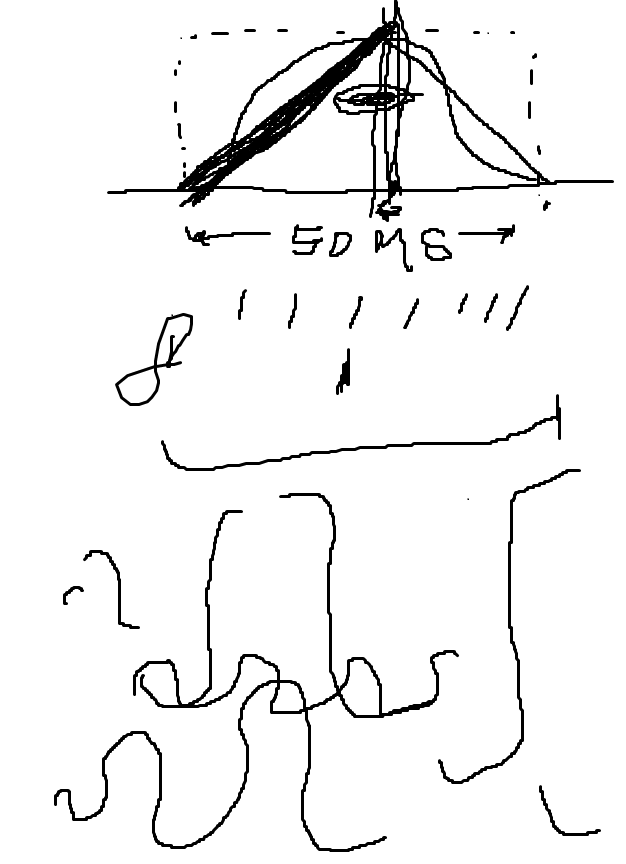 50 MS
8